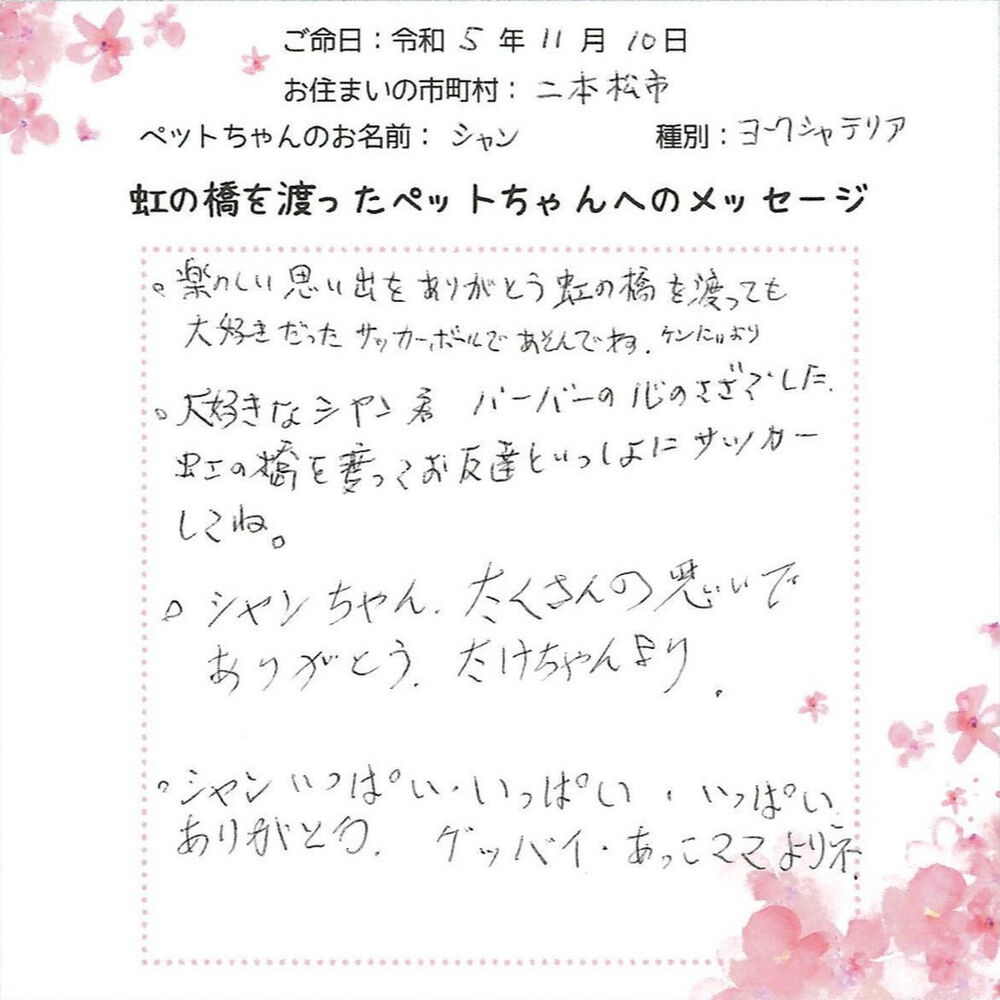 ご命日：令和 5 年 11 月 10日
お住まいの市町村： 二本松市
ペットちゃんのお名前： シャン 種別：ヨークシャテリア
虹の橋を渡ったペットちゃんへのメッセージ
。楽しい思い出をありがとう虹の橋を渡っても
大好きだったサッカーボールであそんでね. ケンたより
。大好きなシャン君 バーバーの心のささえでした.
虹の橋を渡ってお友達といっしょにサッカー
してね。
。シャンちゃん. たくさんの思いで
ありがとう. たけちゃんより.
。シャンいっぱい・いっぱい・いっぱい
ありがとう. グッバイ・あっこママより